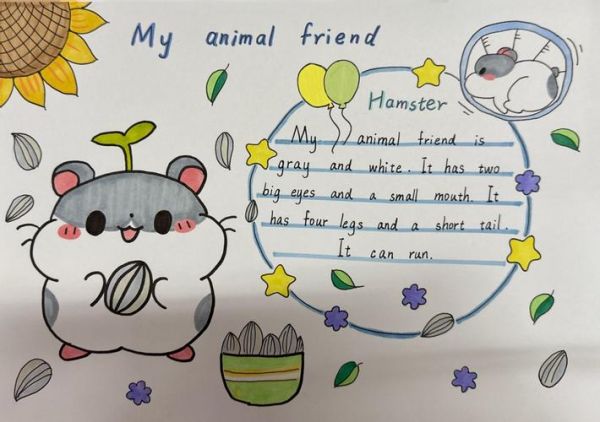 My animal friend
Hamster
My animal friend is
gray and white. It has two
big eyes and a small mouth. It
has four legs and a short tail.
It can run.